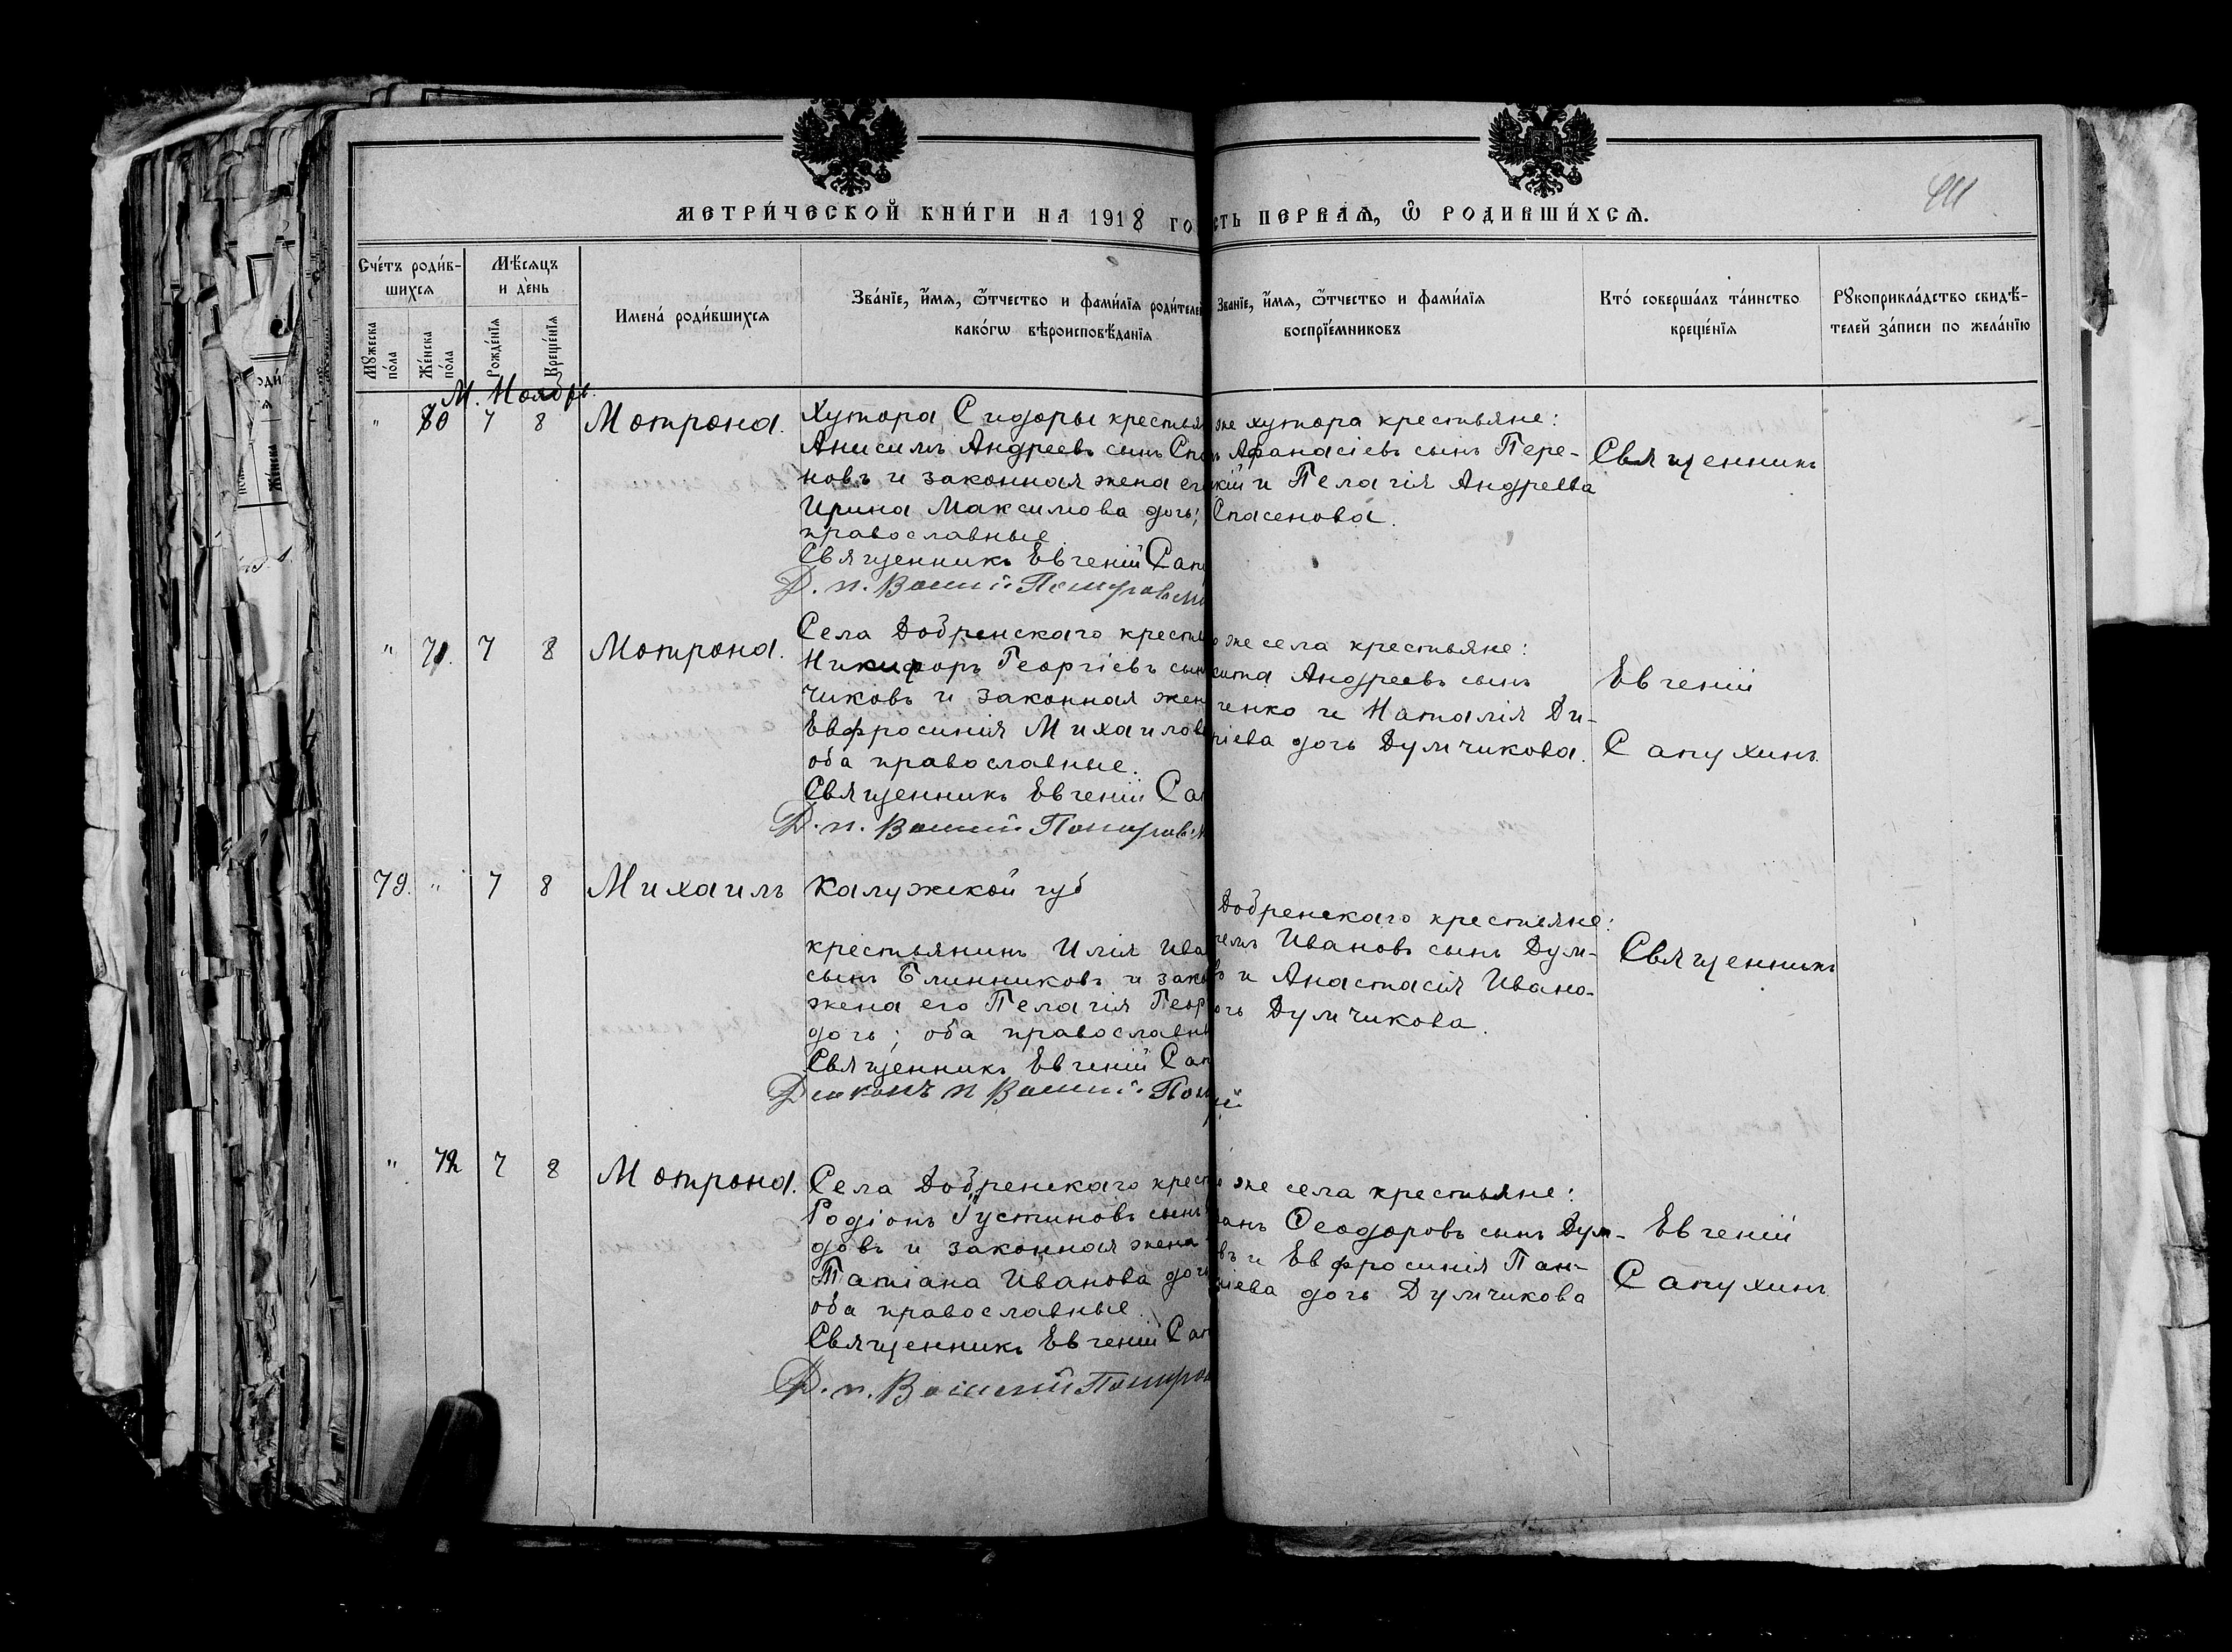 МЕТРИ́ЧЕСКОЙ КНИ́ГИ НА 1918 ГО
СТЬ ПЕРВАѦ, Ѽ РОДИВШИ́ХСѦ.
Сче́тъ роди́в-
шихсѧ
Мꙋ́жеска по́ла
Же́нска по́ла
Мѣ́сѧцъ
и де́нь
Рожде́нїѧ
Креще́нїѧ
Имена́ роди́вшихсѧ
Зва́нїе, и҆́мѧ, ѻ҆́тчество и фами́лїѧ роди́телей
како́гѡ вѣроисповѣ́данїѧ
Зва́нїе, и҆́мѧ, ѻ҆́тчество и фами́лїѧ
воспрїе́мниковъ
Кто́ соверша́лъ та́инство
креще́нїѧ
Рꙋкоприкла́дство свидѣ́-
телей за́писи по жела́нїю
М. Ноябрь.
" 70 7 8 Мотрона.
Хутора Сидоры крестья
Анисимъ Андреевъ сынъ Спа
новъ и законная жена его
Ирина Максимова дочь;
православные
Священникъ Евгеній Сапу
Д. п. Василій Покровски
же хутора крестьяне:
ъ Афанасіевъ сынъ Пере-
кій и Пелагія Андреева
Спасенова.
Священникъ
" 71. 7 8 Мотрона.
Села Добренскаго крестья
Никифоръ Георгіевъ сын
чиковъ и законная жен
Евфросинія Михаилов
оба православные.
Священникъ Евгеній Сап
Д. п. Василій Покровск
о же села крестьяне:
кита Андреевъ сынъ
ченко и Наталія Ди-
ріева дочь Думчикова.
Евгеній
Сапухинъ.
79. " 7 8 Михаилъ
Калужской губ
крестьянинъ Илія Ива
сынъ Блинниковъ и зако
жена его Пелагія Геор
дочь; оба православн
Священникъ Евгеній Сап
Діаконъ п Василій Пок
ій
Добренскаго крестьяне:
темъ Ивановъ сынъ Дум-
ъ и Анастасія Ивано-
очь Думчикова.
Священникъ
" 72 7 8 Мотрона.
Села Добренскаго крест
Родіонъ Іустиновъ сынъ
довъ и законная жена
Татіана Иванова дочь
оба православные.
Священникъ Евгеній Сап
Д. п. Василій Покров
о же села крестьяне:
ванъ Ѳеодоровъ сынъ Дум-
въ и Евфросинія Пан-
ліева дочь Думчикова
Евгеній
Сапухинъ.